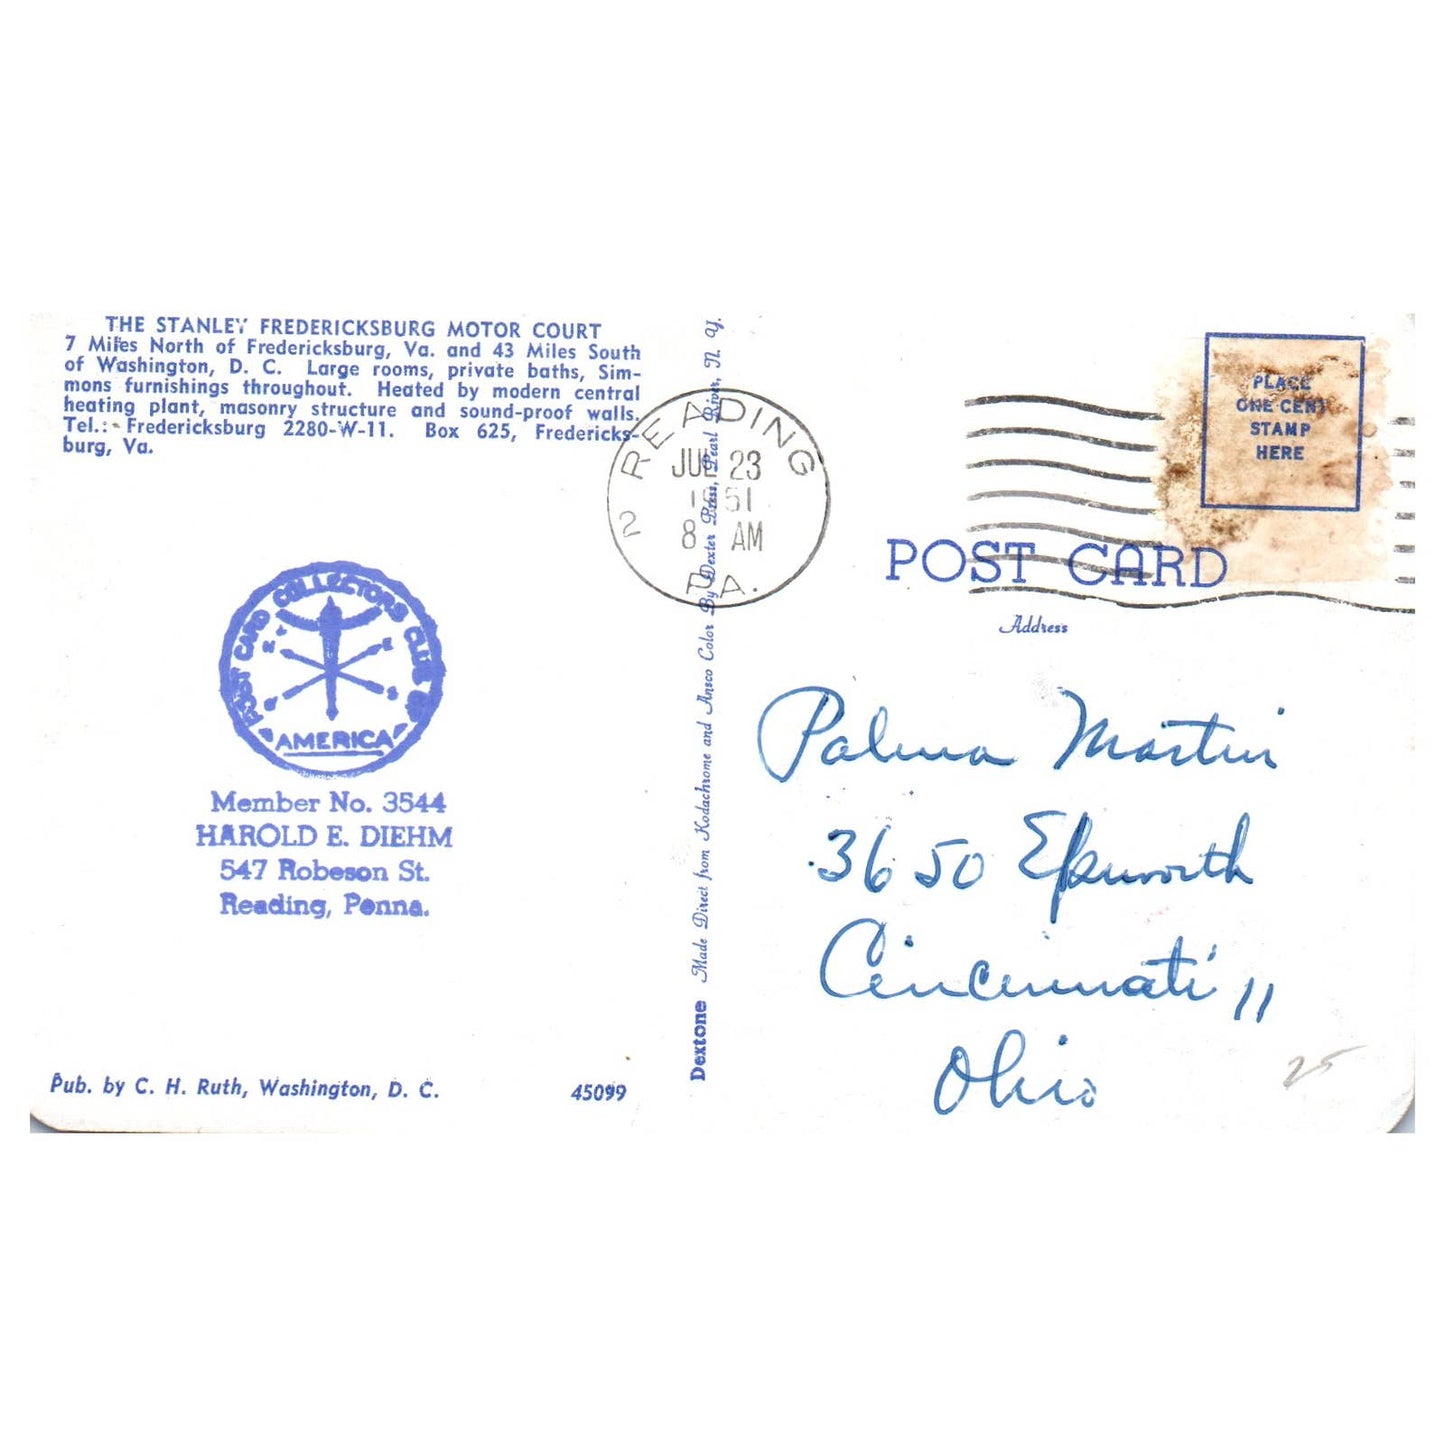 THE STANLEY FREDERICKSBURG MOTOR COURT
7 Miles North of Fredericksburg, Va. and 43 Miles South
of Washington, D. C. Large rooms, private baths, Sim-
mons furnishings throughout. Heated by modern central
heating plant, masonry structure and sound-proof walls.
Tel.: Fredericksburg 2280-W-11. Box 625, Fredericks-
burg, Va.
POST CARD COLLECTORS CLUB OF
N E W S
AMERICA
Member No. 3544
HAROLD E. DIEHM
547 Robeson St.
Reading, Penna.
Pub. by C. H. Ruth, Washington, D. C.
45099
Dextone Made Direct from Kodachrome and Ansco Color By Dexter Press, Pearl River, N. Y.
READING
2
JUL 23
1951
8 AM
PA.
PLACE
ONE CENT
STAMP
HERE
POST CARD
Address
Palma Martin
3650 Epworth
Cincinnati 11
Ohio
25